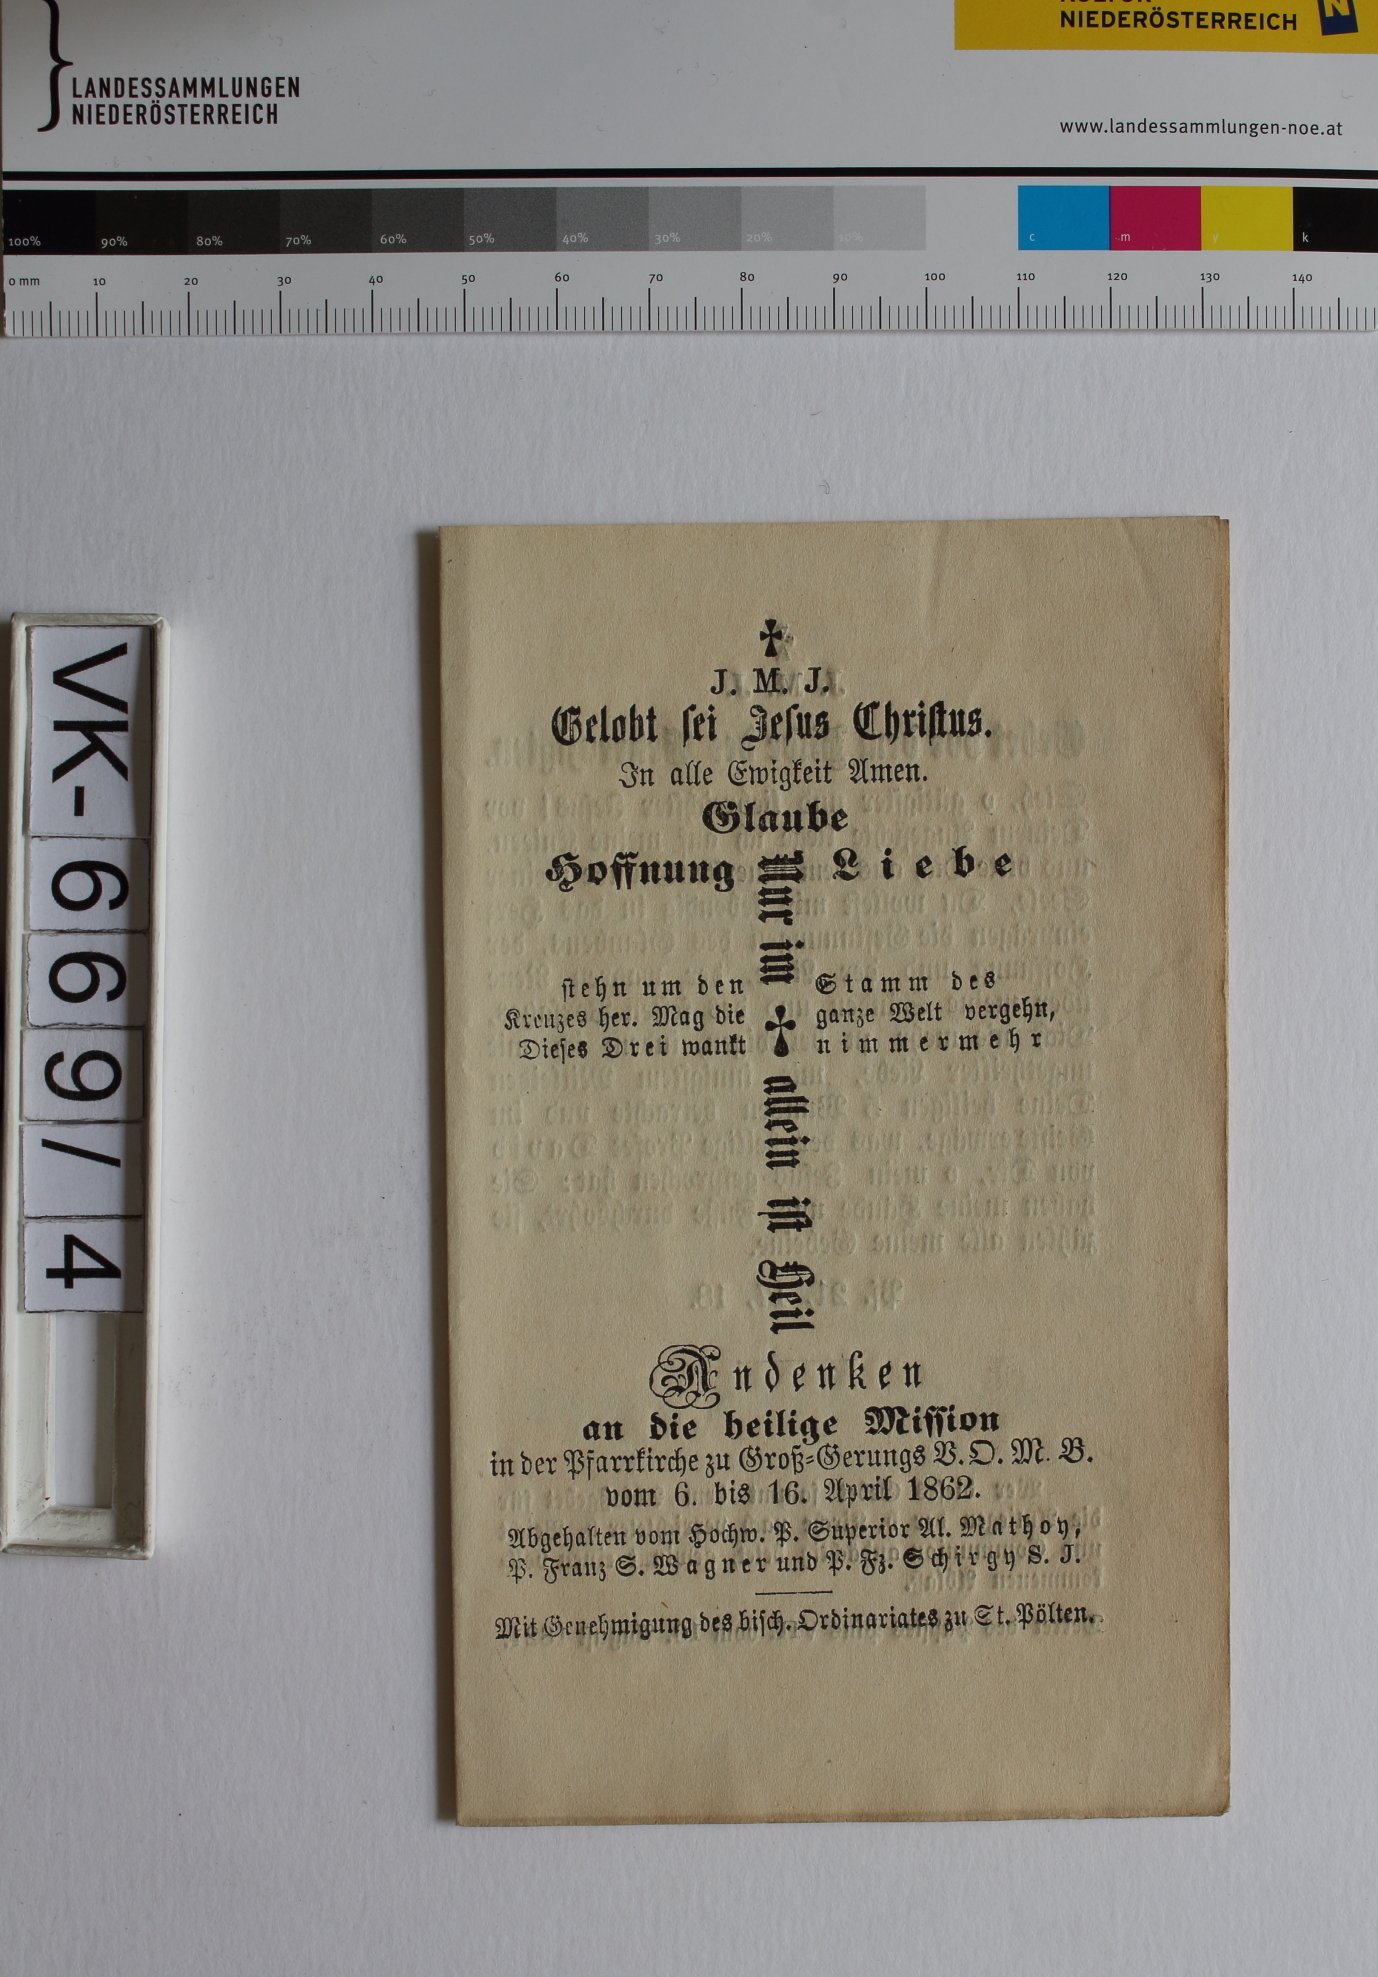 NIEDERÖSTERREICH
LANDESSAMMLUNGEN
NIEDERÖSTERREICH
www.landessammlungen-noe.at
100% 90% 80% 70% 60% 50% 40% 30% 20% 10% c m y k
0 mm 10 20 30 40 50 60 70 80 90 100 110 120 130 140
VK-669/4
J. M. J.
Gelobt sei Jesus Christus.
In alle Ewigkeit Amen.
Glaube
Hoffnung Liebe
Nur im
stehn um den Stamm des
Kreuzes her. Mag die ganze Welt vergehn,
Dieses Drei wankt nimmermehr
allein ist Heil
Andenken
an die heilige Mission
in der Pfarrkirche zu Groß-Gerungs V. O. M. B.
vom 6. bis 16. April 1862.
Abgehalten vom Hochw. P. Superior Al. Mathoy,
P. Franz S. Wagner und P. Fz. Schirgy S. J.
Mit Genehmigung des bisch. Ordinariates zu St. Pölten.